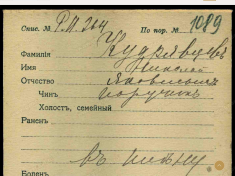 Спис. № Р.М 264 По пор. № 1089
Фамилія Кудрявцевъ
Имя Николай
Отчество Яковлевичъ
Чинъ поручикъ
Холостъ, семейный
Раненъ
въ плѣну
Боленъ